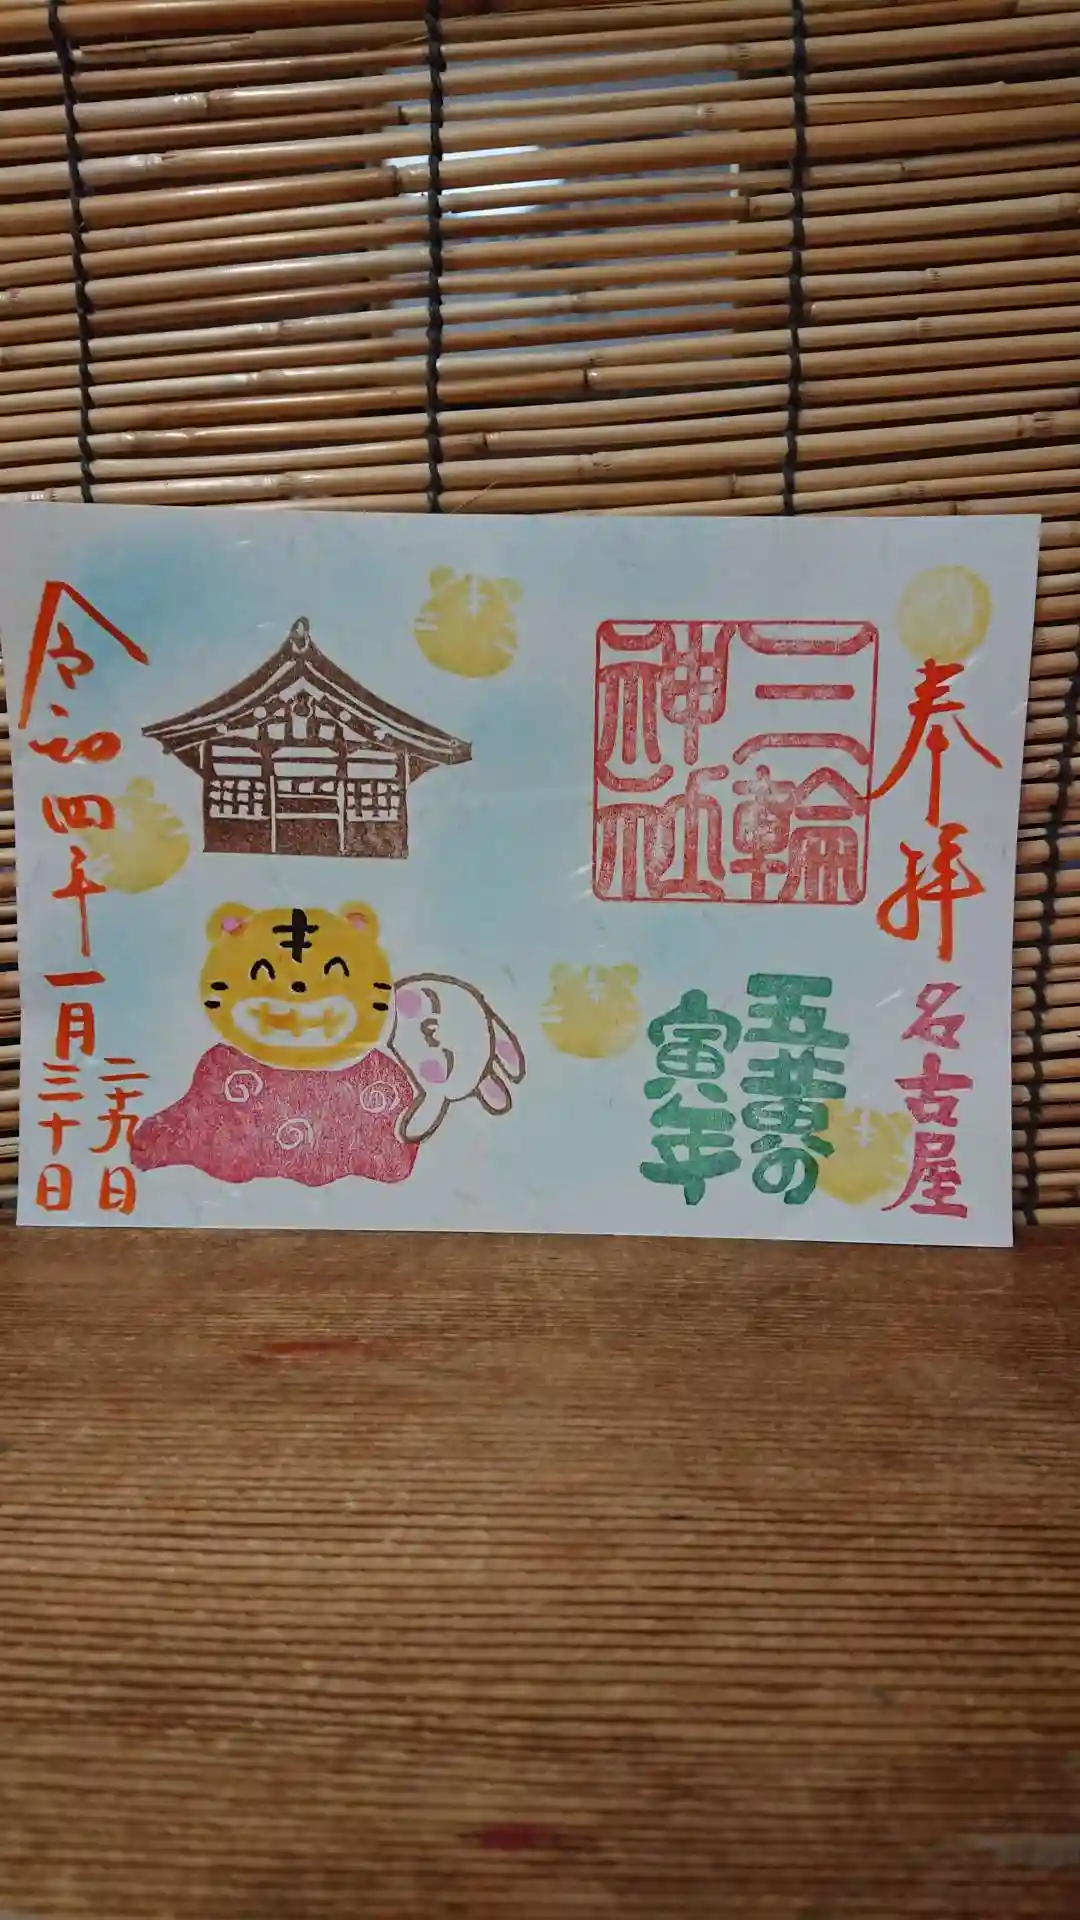 奉拝
名古屋
三輪
神社
五黄の
寅年
令和四年一月
二十九日
三十日